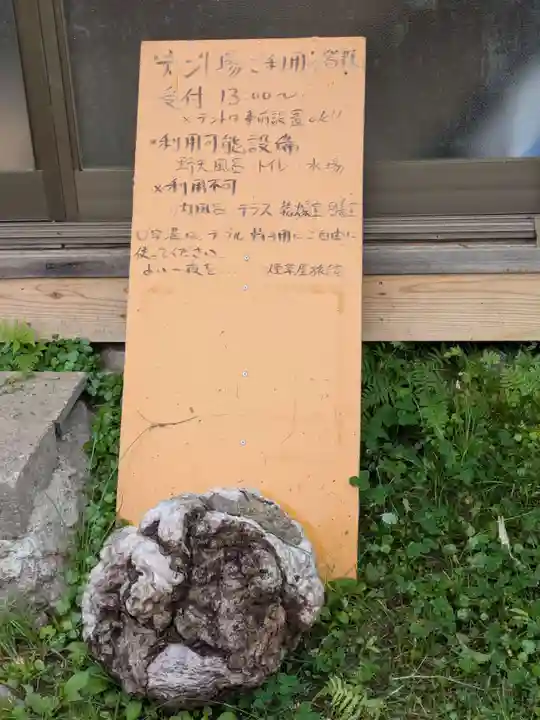 テント場ご利用の皆様
受付 13:00〜
×テントは事前設置OK!!
×利用可能設備
野天風呂 トイレ 水場
×利用不可
内風呂 テラス 乾燥室 自炊室
テーブル 椅子用にご自由に
使ってください
よい一夜を... 煙草屋旅館